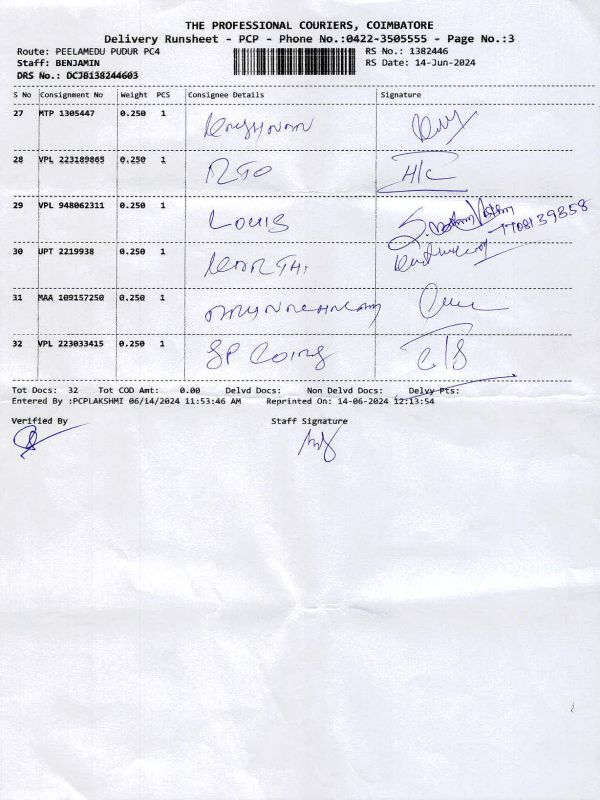 THE PROFESSIONAL COURIERS, COIMBATORE
Delivery Runsheet - PCP - Phone No.:0422-3505555 - Page No.:3
Route: PEELAMEDU PUDUR PC4
RS No.: 1382446
Staff: BENJAMIN
RS Date: 14-Jun-2024
DRS No.: DCJB138244603
S No Consignment No Weight PCS Consignee Details Signature
27 MTP 1305447 0.250 1
28 VPL 223189865 0.250 1 RTO H/C
29 VPL 948062311 0.250 1 LOUIS 7708139858
30 UPT 2219938 0.250 1
31 MAA 109157250 0.250 1
32 VPL 223033415 0.250 1 SP Coims C/S
Tot Docs: 32 Tot COD Amt: 0.00 Delvd Docs: Non Delvd Docs: Delvy Pts:
Entered By :PCPLAKSHMI 06/14/2024 11:53:46 AM Reprinted On: 14-06-2024 12:13:54
Verified By Staff Signature